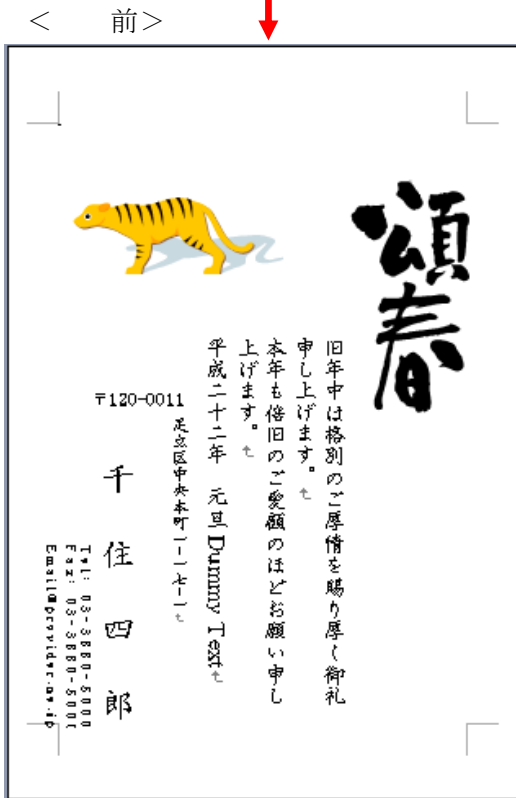 < 前>
頌春
旧年中は格別のご厚情を賜り厚く御礼
申し上げます。
本年も倍旧のご愛顧のほどお願い申し
上げます。
平成二十二年 元旦Dummy Text
〒120-0011
足立区中央本町一-一七-一
千住四郎
Tel: 03-3880-5000
Fax: 03-3880-5001
Email@provider.ne.jp